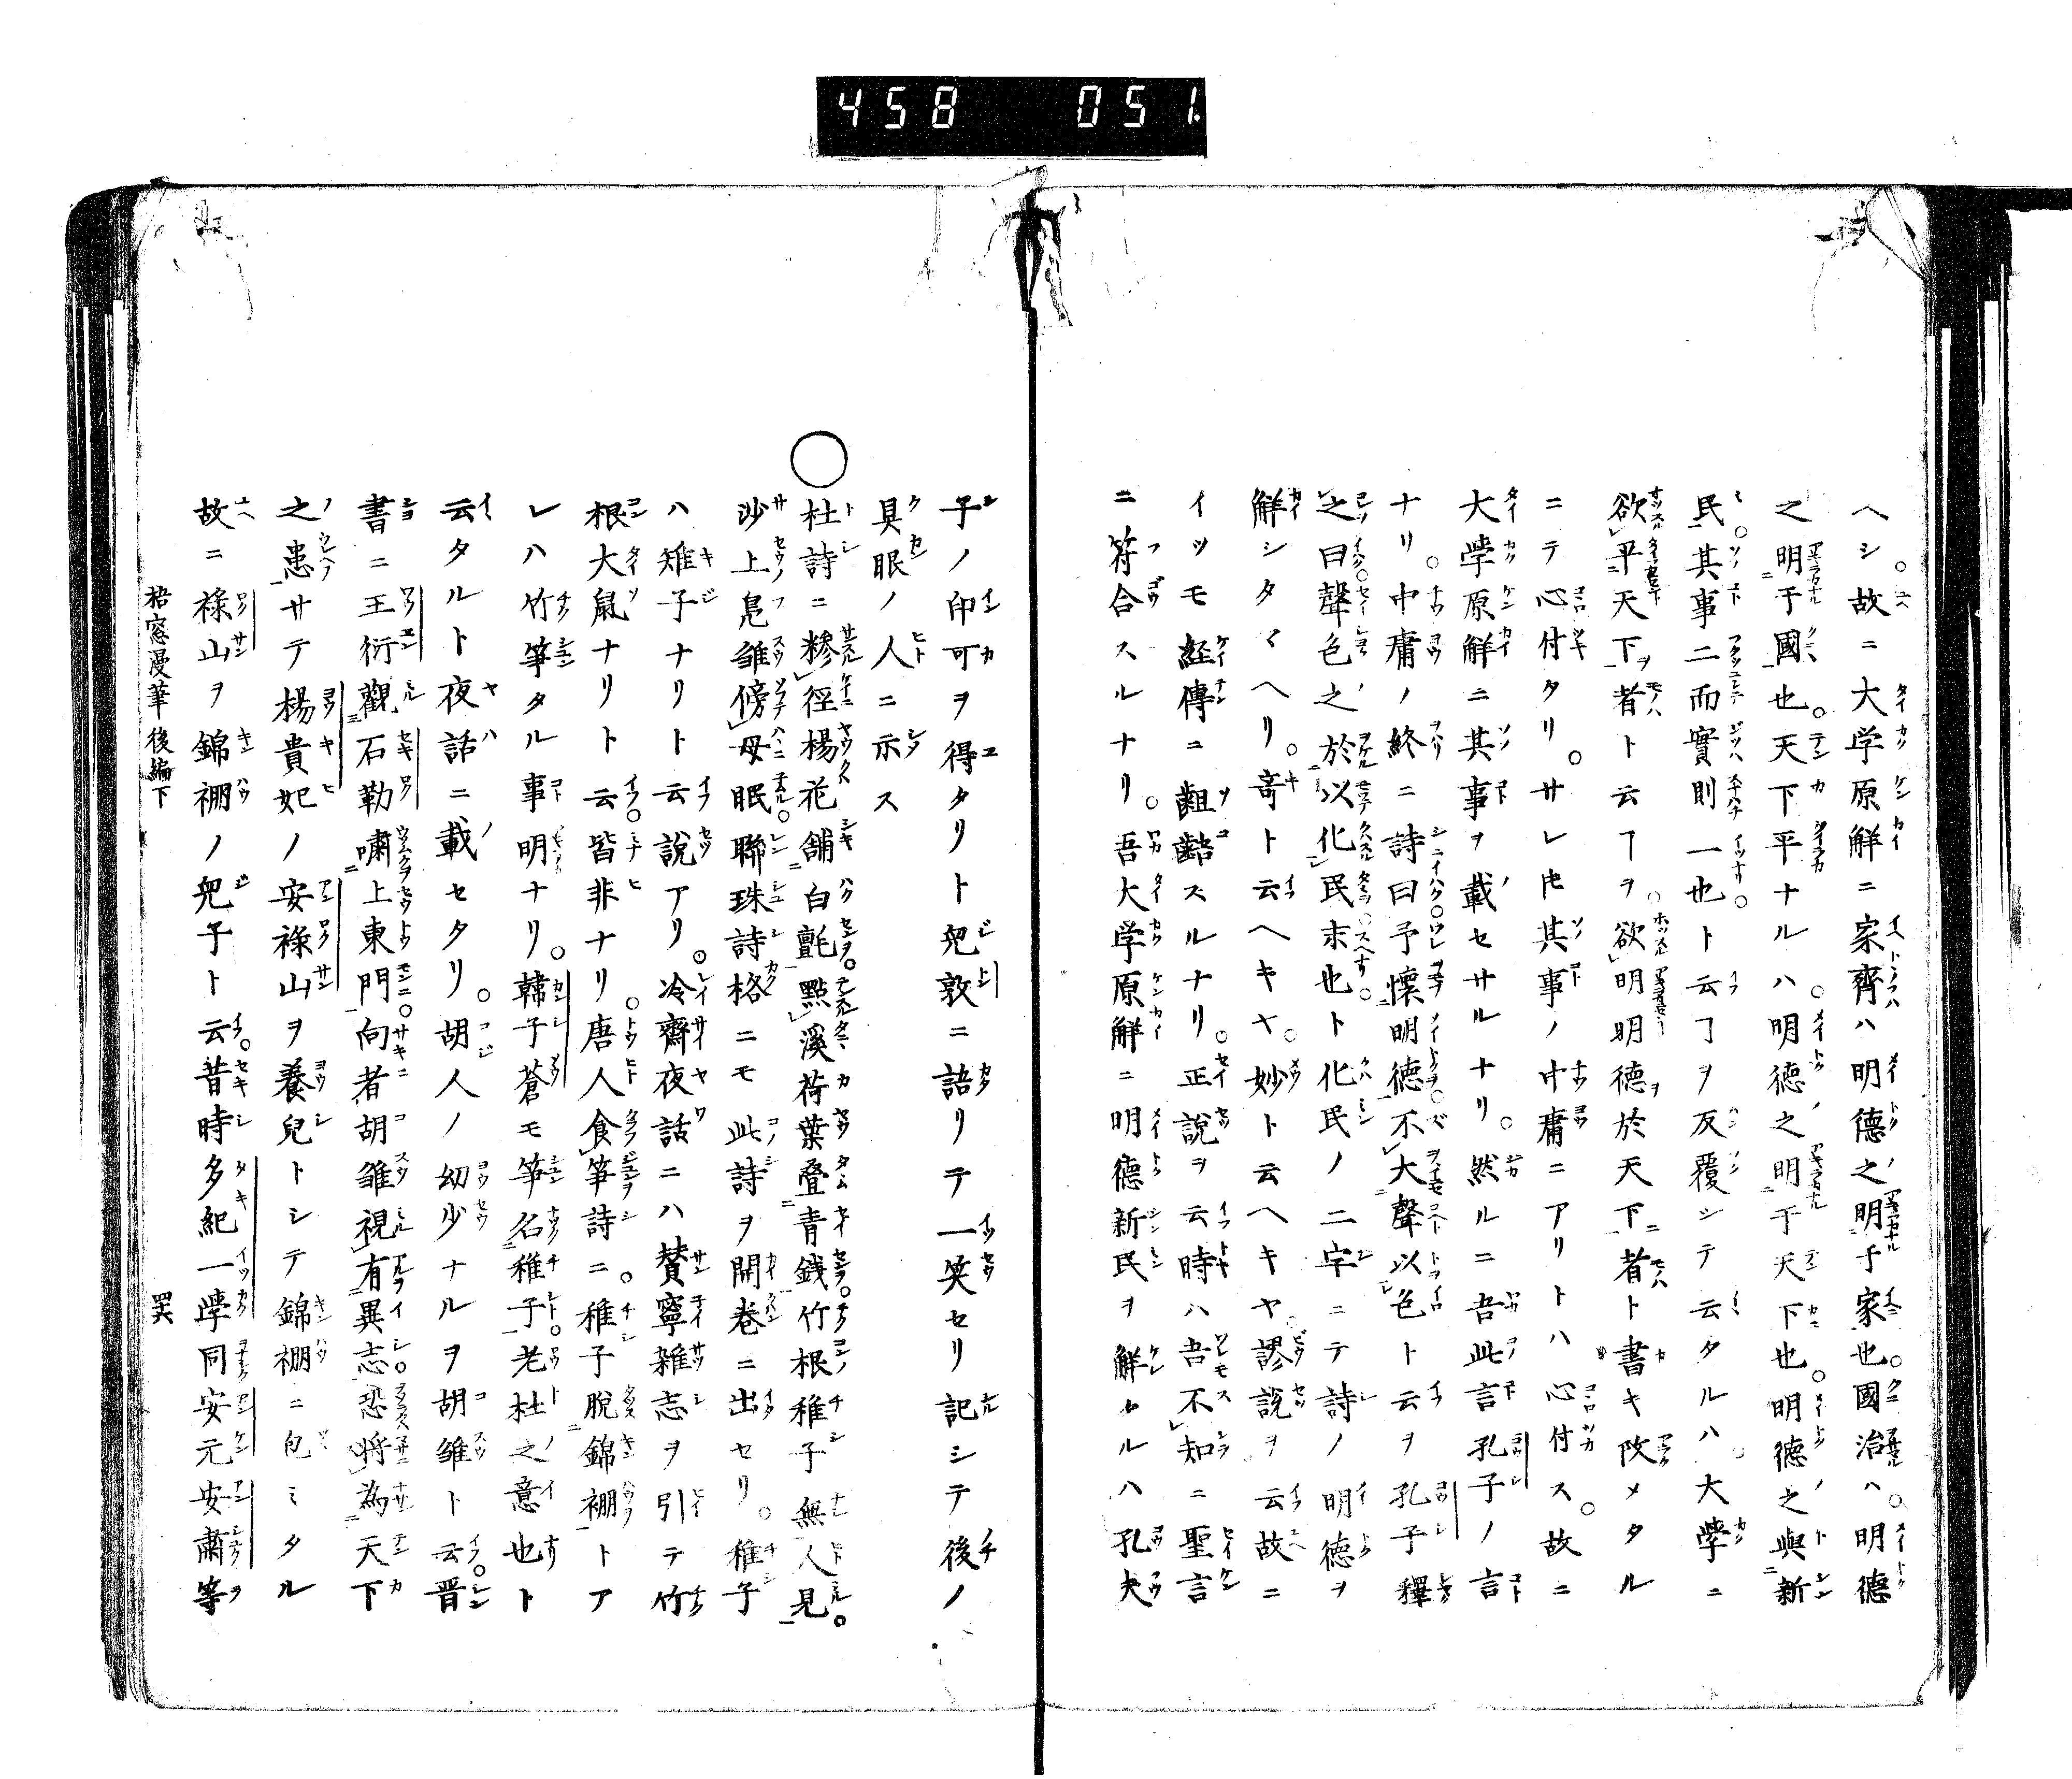 458 051
ヘシ。故ニ大学原解ニ家齊ハ明德之明于家也。國治ハ。明德
之明于國也。天下平ナルハ。明德之明于天下也。明德之與新
民其事二而實則一也。ト云ヿヲ反覆シテ云タルハ。大學ニ
欲平天下者ト云ヿヲ。欲明明德於天下者ト書キ改メタル
ニテ心付タリ。サレ𪜈其事ノ中庸ニアリトハ心付ス。故ニ
大學原解ニ其事ヲ載セサルナリ。然ルニ吾此言孔子ノ言
ナリ。中庸ノ終ニ詩曰予懷明德不大聲以色ト云ヲ孔子釋
之曰聲色之於以化民末也ト化民ノ二字ニテ詩ノ明德ヲ
解シタマヘリ。奇ト云ヘキヤ。妙ト云ヘキヤ。謬說ヲ云故ニ
イツモ経傳ニ齟齬スルナリ。正說ヲ云時ハ吾不知ニ聖言
ニ符合スルナリ。吾大学原解ニ明德新民ヲ解タルハ孔夫
子ノ印可ヲ得タリト兒敦ニ語リテ一笑セリ記シテ後ノ
具眼ノ人ニ示ス
○杜詩ニ糝徑楊花舖白氈。點溪荷葉疊青錢。竹根稚子無人見。
沙上鳧雛傍母眠。聯珠詩格ニモ此詩ヲ開卷ニ出セリ。稚子
ハ雉子ナリト云說アリ。冷齋夜話ニハ賛寧雜志ヲ引テ竹
根大鼠ナリト云。皆非ナリ。唐人食笋詩ニ。稚子脫錦禂トア
レハ竹笋タル事明ナリ。韓子蒼モ笋名稚子。老杜之意也ト
云タルト夜話ニ載セタリ。胡人ノ幼少ナルヲ胡雛ト云。晋
書ニ王衍觀石勒嘯上東門。向者胡雛視有異志。恐將為天下
之患サテ楊貴妃ノ安祿山ヲ養兒トシテ錦禂ニ包ミタル
故ニ祿山ヲ錦禂ノ兒子ト云。昔時多紀一學同安元安肅等
梧窓漫筆後編下